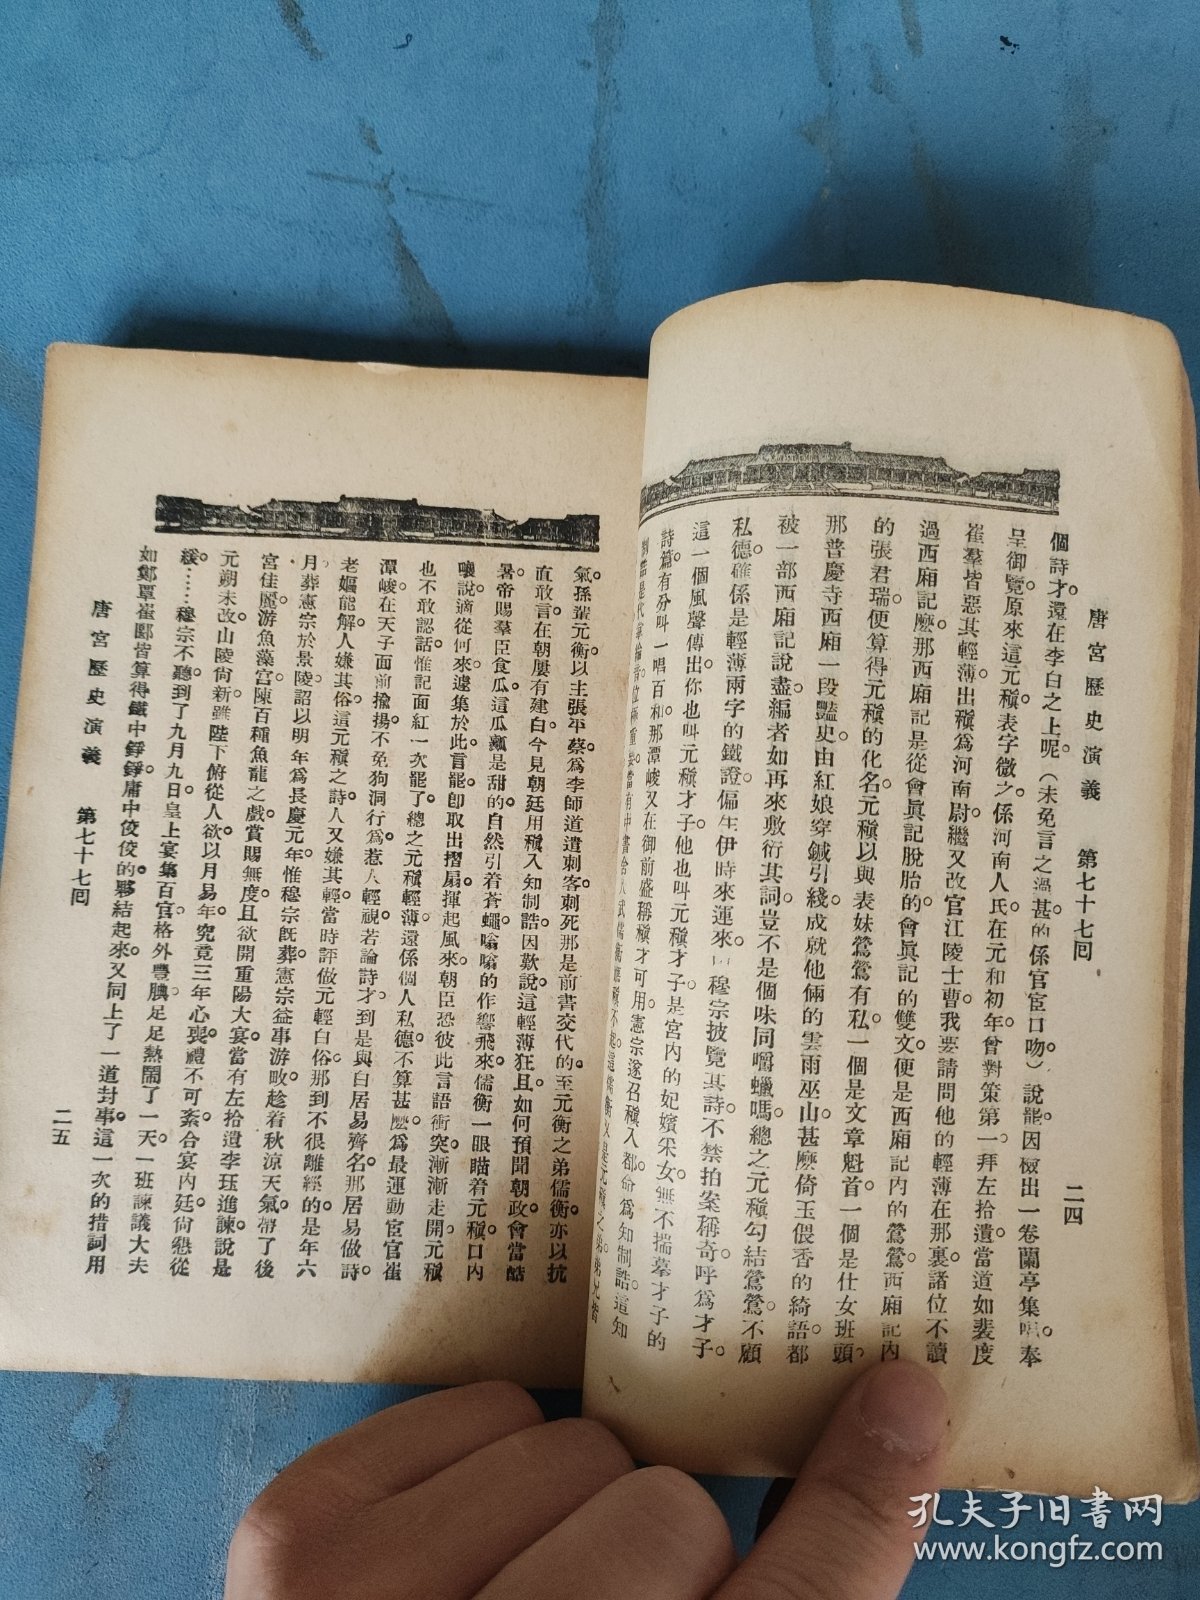 唐宮歷史演義　第七十七回　二四
個詩才。還在李白之上呢。（未免言之過甚的係官宦口吻）說罷。因檢出一卷蘭亭集。奉
呈御覽。原來這元稹。表字微之。係河南人氏。在元和初年。曾對策第一。拜左拾遺。當道如裴度
崔羣。皆惡其輕薄。出稹爲河南尉。繼又改官江陵士曹。我要請問他的輕薄在那裏。諸位不讀
過西廂記麽。那西廂記是從會眞記脫胎的。會眞記的雙文。便是西廂記內的鶯鶯。西廂記內
的張君瑞。便算得元稹的化名。元稹以與表妹鶯鶯有私。一個是文章魁首。一個是仕女班頭。
那普慶寺西廂一段豔史。由紅娘穿鍼引綫。成就他倆的雲雨巫山。甚麽倚玉偎香的綺語。都
被一部西廂記說盡。編者如再來敷衍其詞。豈不是個味同嚼蠟嗎。總之元稹勾結鶯鶯。不顧
私德。確係是輕薄兩字的鐵證。偏生伊時來運來。穆宗披覽其詩。不禁拍案稱奇。呼爲才子。
這一個風聲傳出。你也叫元稹才子。他也叫元稹才子。是宮內的妃嬪采女。無不揣摹才子的
詩篇。有分叫一唱百和。那潭峻又在御前盛稱稹才可用。憲宗遂召稹入都。命爲知制誥。這知
氣。孫叢元衡。以主張平蔡。爲李師道遣刺客刺死。那是前書交代的。至元衡之弟儒衡。亦以抗
直敢言。在朝屢有建白。今見朝廷用稹入知制誥。因歎說。這輕薄狂且。如何預聞朝政。會當酷
暑。帝賜羣臣食瓜。這瓜瓤是甜的。自然引着蒼蠅。嗡嗡的作響飛來。儒衡一眼瞄着元稹。口內
嚷說。適從何來。遽集於此。言罷。卽取出摺扇。揮起風來。朝臣恐彼此言語衝突。漸漸走開。元稹
也不敢認話。惟記面紅一次罷了。總之元稹輕薄。還係個人私德。不算甚麽。爲最運動宦官崔
潭峻。在天子面前揄揚。不免狗洞行爲。惹人輕視。若論詩才。到是與白居易齊名。那居易做詩。
老嫗能解。人嫌其俗。這元稹之詩。人又嫌其輕。當時評做元輕白俗。那到不很離經的。是年六
月。葬憲宗於景陵。詔以明年爲長慶元年。惟穆宗旣葬憲宗。益事游畋。趁着秋涼天氣。帶了後
宮佳麗。游魚藻宮。陳百種魚龍之戲。賞賜無度。且欲開重陽大宴。當有左拾遺李珏進諫。說是
元朔未改。山陵尙新。雖陛下俯從人欲。以月易年。究竟三年心喪。禮不可紊。合宴內廷。尙懇從
緩……穆宗不聽。到了九月九日。皇上宴集百官。格外豐腆。足足熱鬧了一天。一班諫議大夫
如鄭覃崔郾。皆算得鐵中錚錚。庸中佼佼的。夥結起來。又同上了一道封事。這一次的措詞用
唐宮歷史演義　第七十七回　二五
孔夫子旧書网
www.kongfz.com